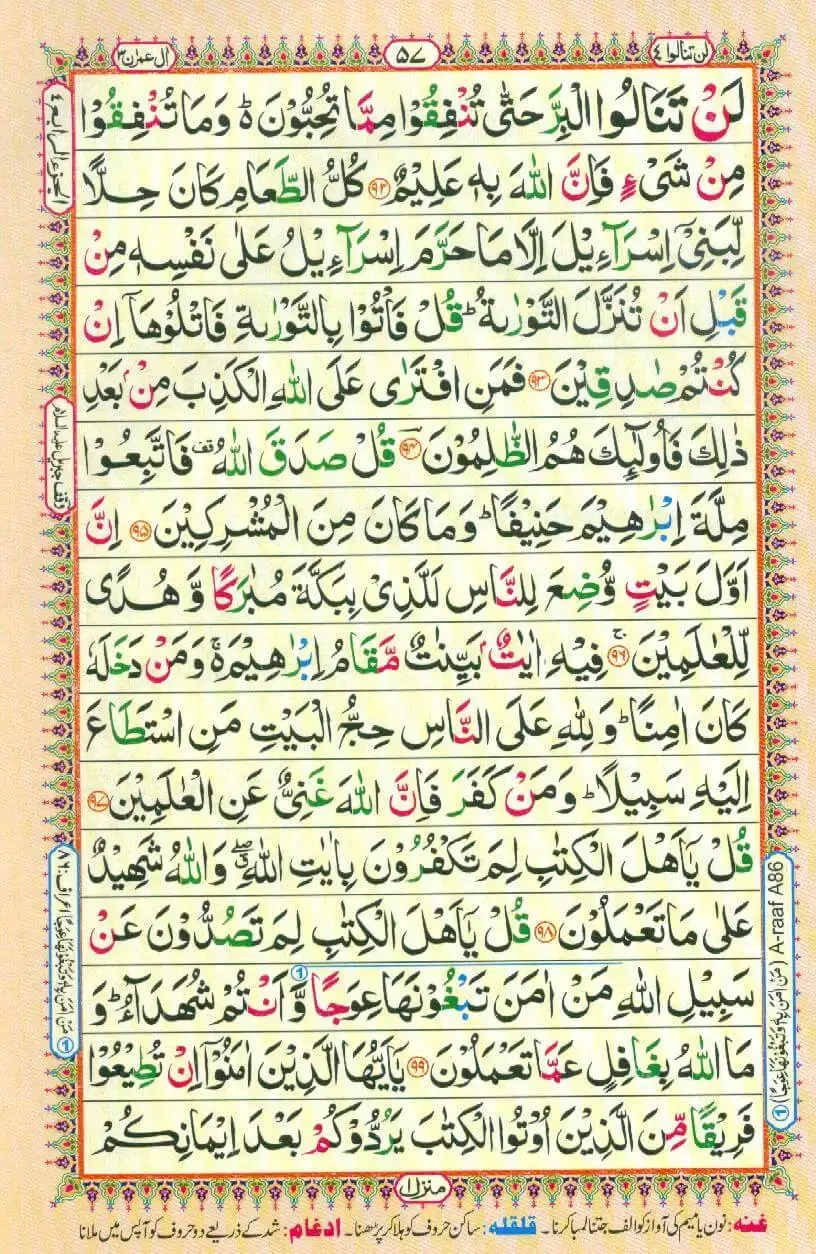 لن تنالوا ۴
۵۷
اٰل عمرٰن ۳
لَنْ تَنَالُوا الْبِرَّ حَتّٰى تُنْفِقُوْا مِمَّا تُحِبُّوْنَ ؕ۬ وَمَا تُنْفِقُوْا
مِنْ شَیْءٍ فَاِنَّ اللّٰهَ بِهٖ عَلِیْمٌ ﴿۹۲﴾ كُلُّ الطَّعَامِ كَانَ حِلًّا
لِّبَنِیْۤ اِسْرَآءِیْلَ اِلَّا مَا حَرَّمَ اِسْرَآءِیْلُ عَلٰى نَفْسِهٖ مِنْ
قَبْلِ اَنْ تُنَزَّلَ التَّوْرٰىةُ ؕ قُلْ فَاْتُوْا بِالتَّوْرٰىةِ فَاتْلُوْهَاۤ اِنْ
كُنْتُمْ صٰدِقِیْنَ ﴿۹۳﴾ فَمَنِ افْتَرٰى عَلَى اللّٰهِ الْكَذِبَ مِنْۢ بَعْدِ
ذٰلِكَ فَاُولٰٓىِٕكَ هُمُ الظّٰلِمُوْنَ ﴿۹۴﴾ قُلْ صَدَقَ اللّٰهُ ۫ قف فَاتَّبِعُوْا
مِلَّةَ اِبْرٰهِیْمَ حَنِیْفًا ؕ وَمَا كَانَ مِنَ الْمُشْرِكِیْنَ ﴿۹۵﴾ اِنَّ
اَوَّلَ بَیْتٍ وُّضِعَ لِلنَّاسِ لَلَّذِیْ بِبَكَّةَ مُبٰرَكًا وَّ هُدًى
لِّلْعٰلَمِیْنَ ۚ﴿۹۶﴾ فِیْهِ اٰیٰتٌۢ بَیِّنٰتٌ مَّقَامُ اِبْرٰهِیْمَ ۬ۚ وَمَنْ دَخَلَهٗ
كَانَ اٰمِنًا ؕ وَلِلّٰهِ عَلَى النَّاسِ حِجُّ الْبَیْتِ مَنِ اسْتَطَاعَ
اِلَیْهِ سَبِیْلًا ؕ وَمَنْ كَفَرَ فَاِنَّ اللّٰهَ غَنِیٌّ عَنِ الْعٰلَمِیْنَ ﴿۹۷﴾
قُلْ یٰۤاَهْلَ الْكِتٰبِ لِمَ تَكْفُرُوْنَ بِاٰیٰتِ اللّٰهِ ۖۗ وَاللّٰهُ شَهِیْدٌ
عَلٰى مَا تَعْمَلُوْنَ ﴿۹۸﴾ قُلْ یٰۤاَهْلَ الْكِتٰبِ لِمَ تَصُدُّوْنَ عَنْ
سَبِیْلِ اللّٰهِ مَنْ اٰمَنَ تَبْغُوْنَهَا عِوَجًا وَّ اَنْتُمْ شُهَدَآءُ ؕ وَ
مَا اللّٰهُ بِغَافِلٍ عَمَّا تَعْمَلُوْنَ ﴿۹۹﴾ یٰۤاَیُّهَا الَّذِیْنَ اٰمَنُوْۤا اِنْ تُطِیْعُوْا
فَرِیْقًا مِّنَ الَّذِیْنَ اُوْتُوا الْكِتٰبَ یَرُدُّوْكُمْ بَعْدَ اِیْمَانِكُمْ
الجزء الرابع ۴
وقف جبریل علیہ السلام
① مَنْ اٰمَنَ بِهٖ وَتَبْغُوْنَهَا عِوَجًا اعراف:۸۶
① (مَنْ اٰمَنَ بِهٖ وَتَبْغُوْنَهَا عِوَجًا) A-raaf A86
منزل ۱
غنہ: نون یا میم کی آواز کو الف جتنا لمبا کرنا۔ قلقلہ: ساکن حروف کو ہلا کر پڑھنا۔ ادغام: شد کے ذریعے دو حروف کو آپس میں ملانا